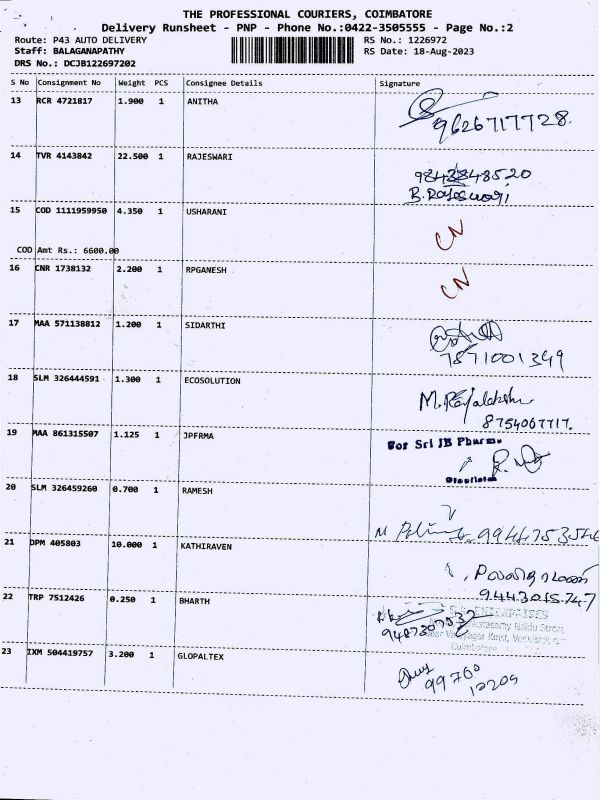 THE PROFESSIONAL COURIERS, COIMBATORE
Delivery Runsheet - PNP - Phone No.:0422-3505555 - Page No.:2
Route: P43 AUTO DELIVERY
RS No.: 1226972
Staff: BALAGANAPATHY
RS Date: 18-Aug-2023
DRS No.: DCJB122697202
S No Consignment No Weight PCS Consignee Details Signature
13 RCR 4721817 1.900 1 ANITHA
9626717728
14 TVR 4143842 22.500 1 RAJESWARI
B. Rajeswari
15 COD 1111959950 4.350 1 USHARANI
CN
COD Amt Rs.: 6600.00
16 CNR 1738132 2.200 1 RPGANESH
CN
17 MAA 571138812 1.200 1 SIDARTHI
7871001349
18 SLM 326444591 1.300 1 ECOSOLUTION
8754007717.
19 MAA 861315507 1.125 1 JPFRMA
For Sri JB Pharma
20 SLM 326459260 0.700 1 RAMESH
9944753546
21 DPM 405803 10.000 1 KATHIRAVEN
9443015747
22 TRP 7512426 0.250 1 BHARTH
ENTERPRISES
Naidu Street
Coimbatore
23 IXM 504419757 3.200 1 GLOPALTEX
99760
12209